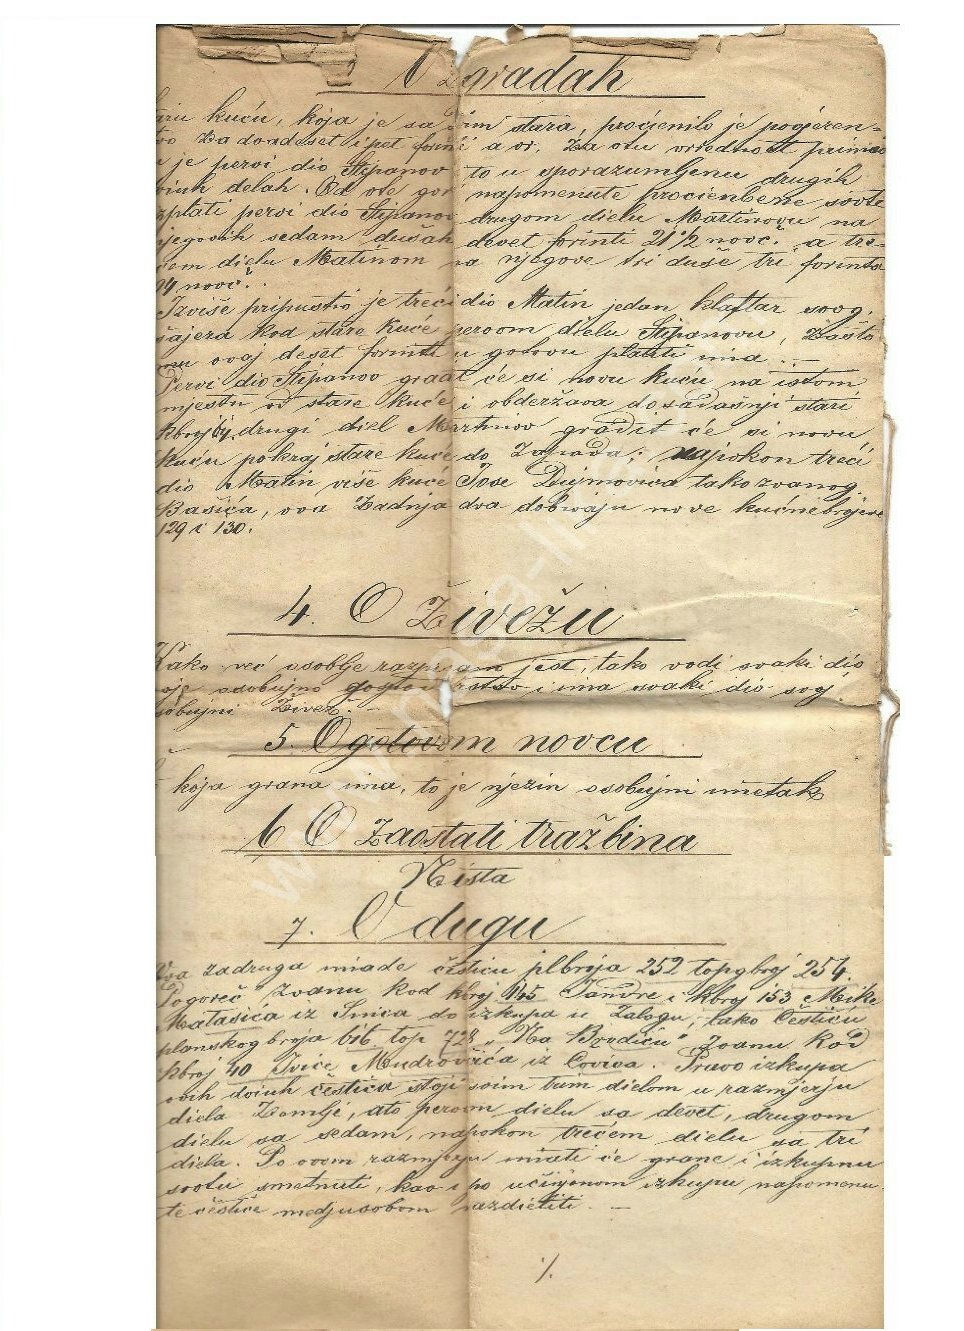 O zgradah
kuću, koja je sasvim stara, procienilo je povjeren-
stvo za dvadeset i pet forinti a vr. Za ovu vrednost primio
ju je pervi dio Stipanov to u sporazumljenu drugih
dviuh delah. Od ove gori napomenute procienbene svote
izplati pervi dio Stipanov drugom dielu Martinovu na
njegovih sedam dušah devet forinti 21 1/2 novč. a tre-
ćem dielu Matinom na njegove tri duše tri forinta
94 novč.
Izviše pripustio je treći dio Matin jedan klaftar svog
kod stare kuće pervom dielu Stipanovu, zašto
mu ovaj deset forinti u gotovu platiti ima. —
Pervi dio Stipanov gradit će si novu kuću na istom
mjestu od stare kuće i obderžava dosadašnji stari
kbroj 64, drugi diel Martinov gradit će si novu
kuću pokraj stare kuće do Zapada; najpokon treći
dio Matin više kuće Jose Dujmovića takozvanog
Bašića, ova zadnja dva dobivaju nove kućne brojeve
129 i 130.
4. O Živežu
Kako već osoblje razpisano jest, tako vodi svaki dio
svoje osobujno gospodarstvo i ima svaki dio svoj
osobujni živež. —
5. O gotovom novcu
koja grana ima, to je njezin osobujni imetak
6 O zaostali tražbina
Ništa
7. O dugu
Ova zadruga imade česticu plbroja 252 topgbroj 254.
Pogoreč zvanu kod kbroj 145 Jandre i kbroj 153 Mike
Matasića iz Sinca do izkupa u zalogu; tako čestiću
planskog broja 616 top 728 „Na Brodiću" zvanu kod
kbroj 40 Ivice Mudrovčića iz Čovića. Pravo izkupa
ovih dviuh čestića stoji svim trim dielom u razmjerju
diela zemlje, a to pervom dielu sa devet, drugom
dielu sa sedam, napokon trećem dielu sa tri
diela. Po ovom razmjerju imati će grane i izkupnu
svotu smetnuti, kao i po učinjenom izkupu napomenu-
te čestiće medjusobom razdieliti. —
./.
www.nasa-lika.com